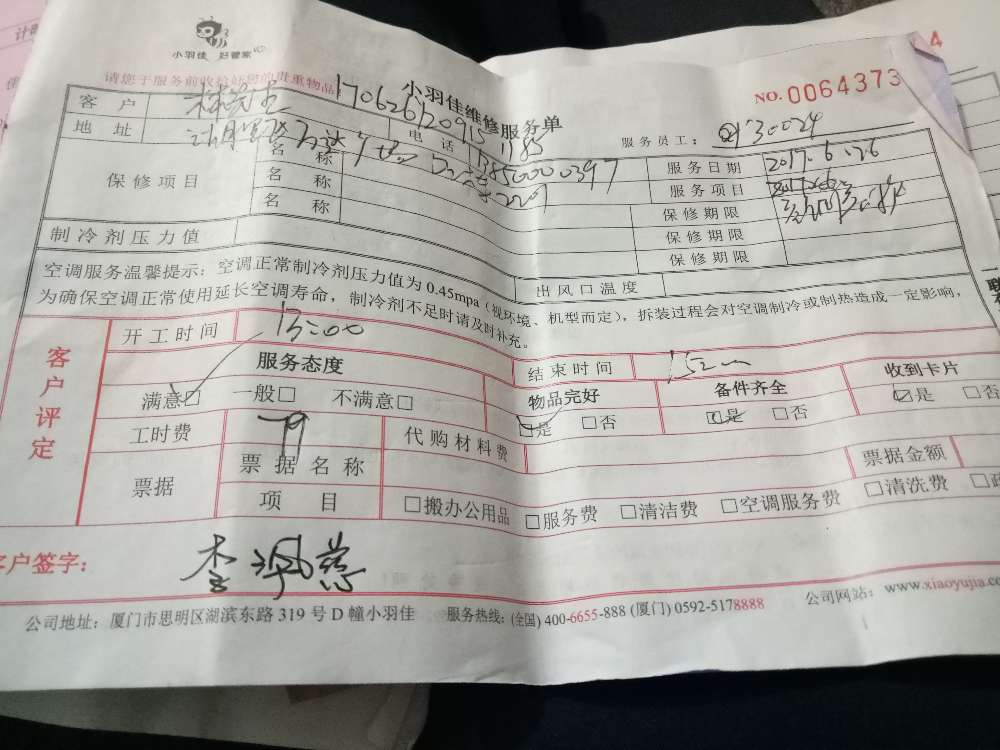 小羽佳 好管家
请您于服务前收拾好您的贵重物品
小羽佳维修服务单
NO. 0064373
170626120915
客户
电话
服务员工:
地址
服务日期 2017.6.26
保修项目
名称
服务项目
名称
保修期限
名称
保修期限
保修期限
制冷剂压力值
出风口温度
空调服务温馨提示:空调正常制冷剂压力值为0.45mpa(视环境、机型而定),拆装过程会对空调制冷或制热造成一定影响,
为确保空调正常使用延长空调寿命,制冷剂不足时请及时补充。
客户评定
开工时间 13:00
结束时间
服务态度
物品完好
备件齐全
收到卡片
满意☑ 一般□ 不满意□
☑是 □否
☑是 □否
☑是 □否
工时费
代购材料费
票据
票据名称
票据金额
项目
□搬办公用品 □服务费 □清洁费 □空调服务费 □清洗费
客户签字:
公司地址:厦门市思明区湖滨东路319号D幢小羽佳 服务热线:(全国)400-6655-888 (厦门)0592-5178888 公司网站:www.xiaoyujia.com